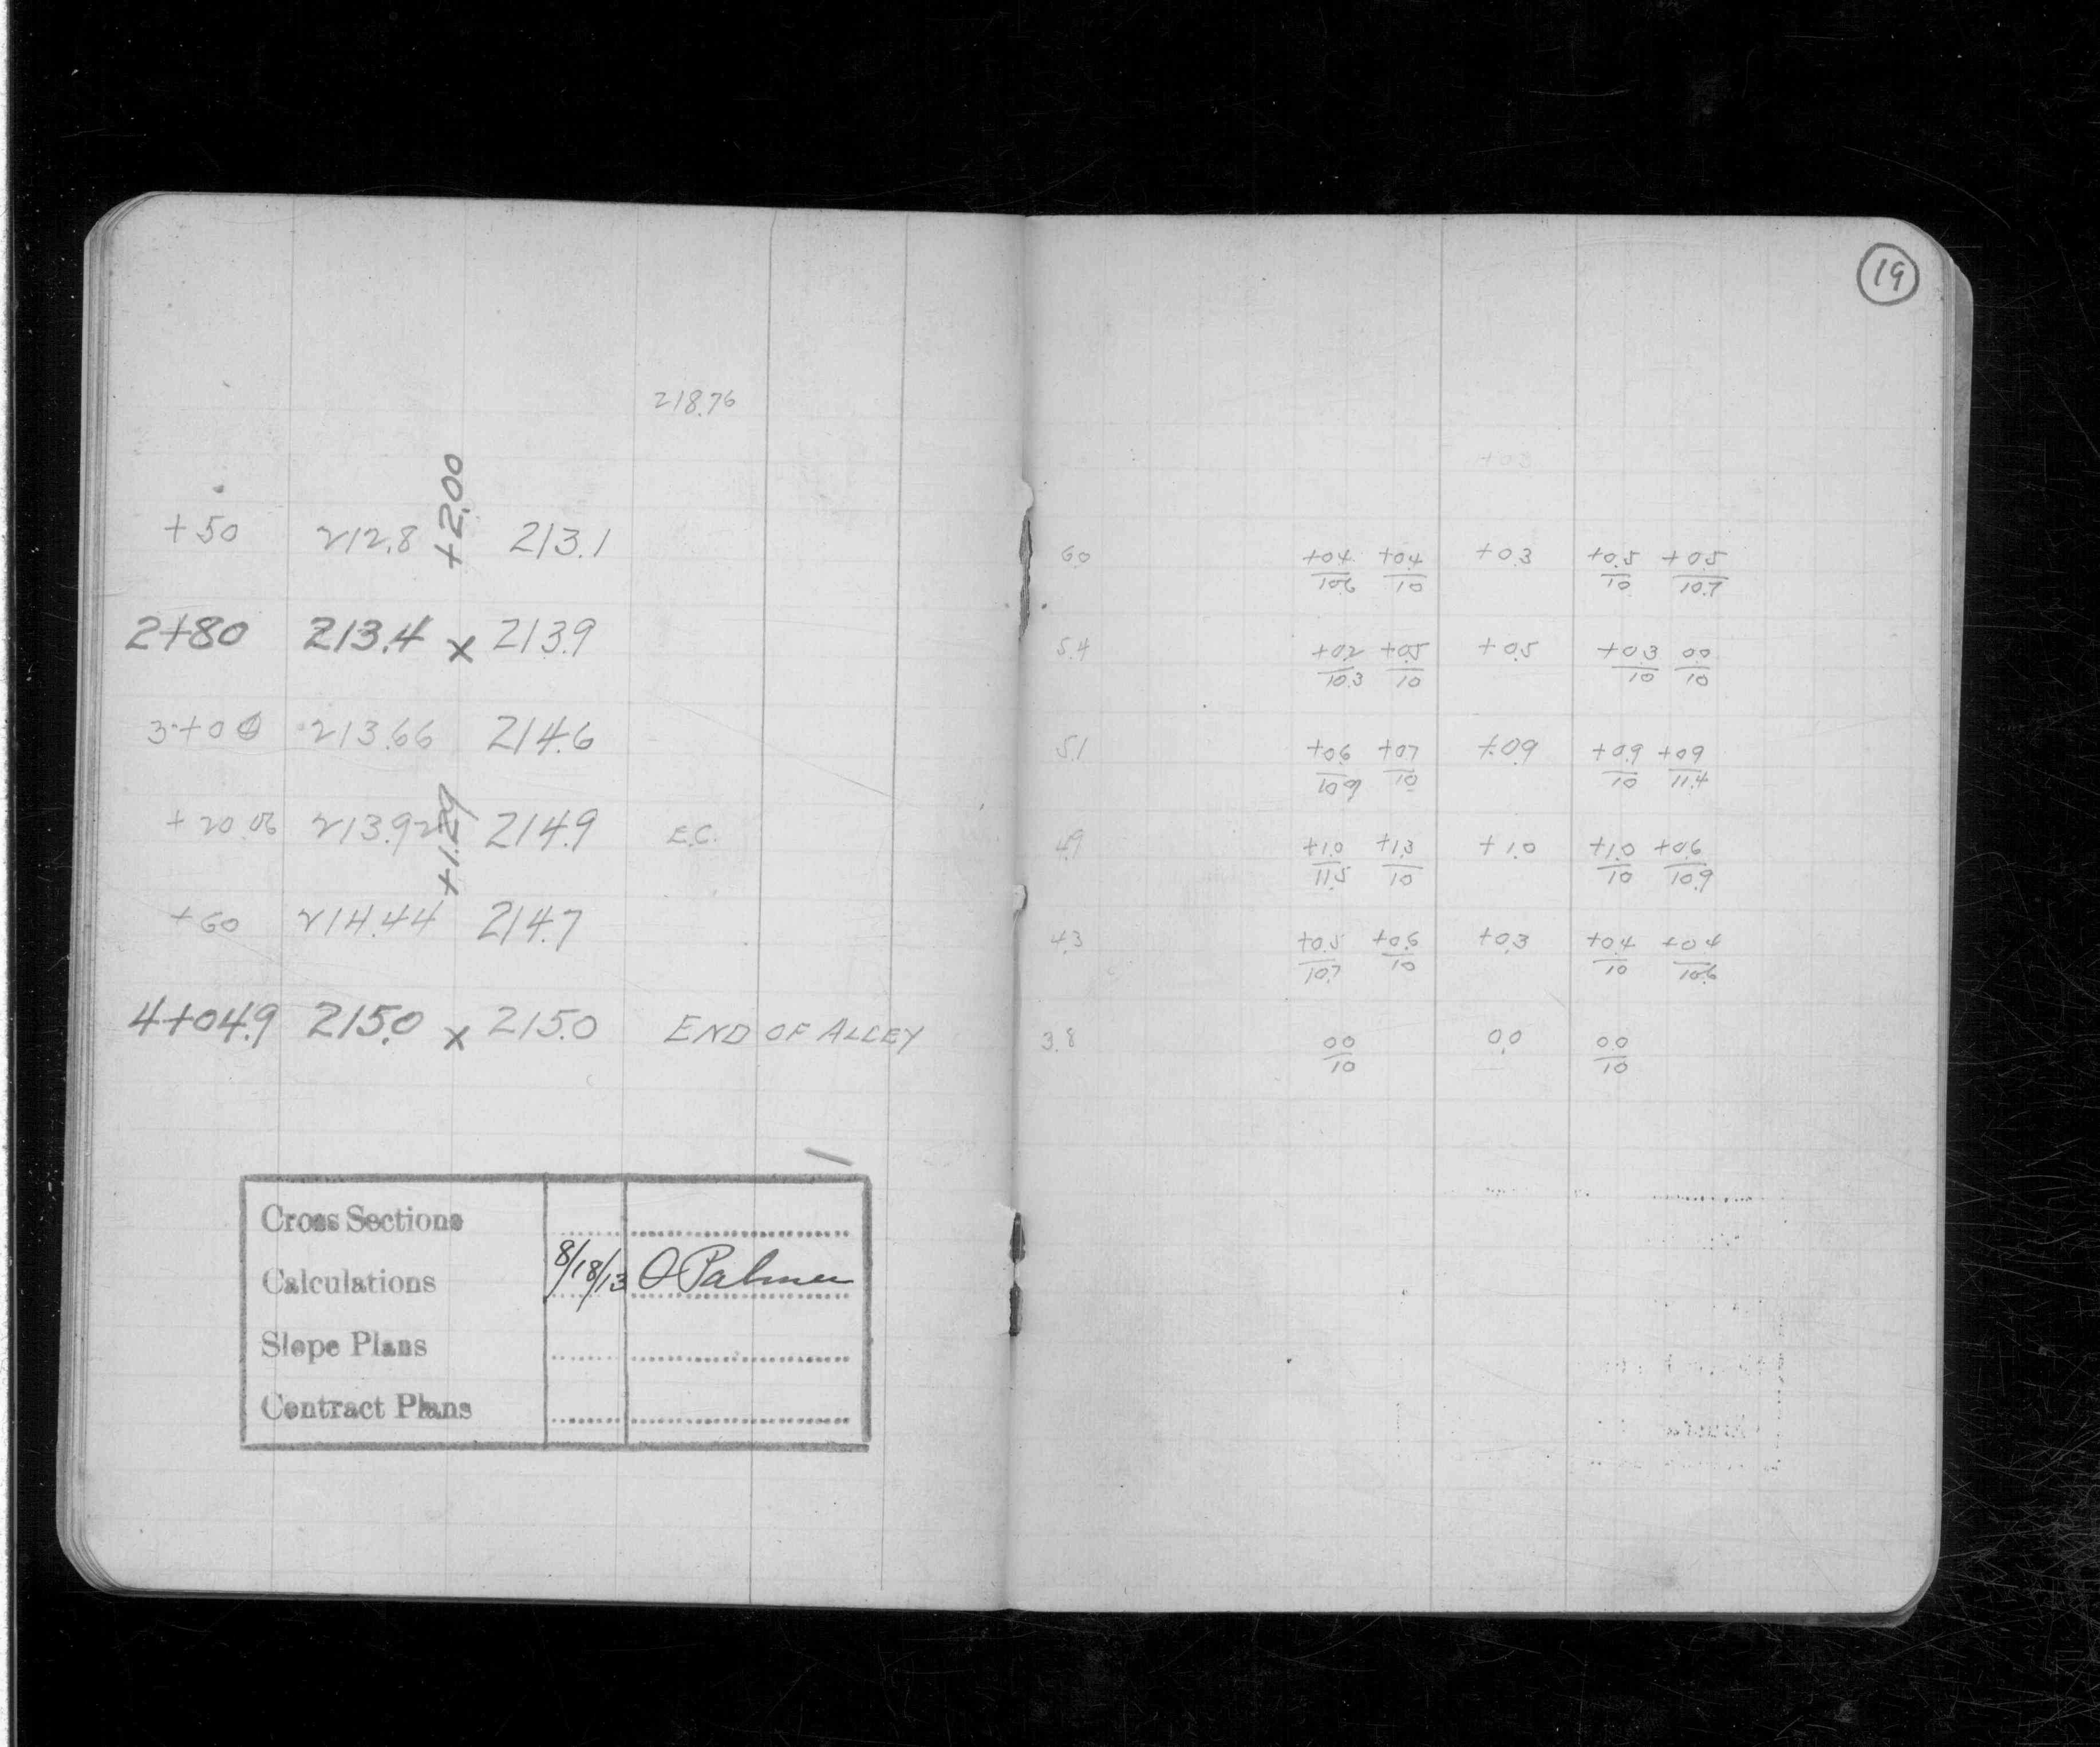 218.76
+50 212.8 +2.00 213.1
2+80 213.4 x 213.9
3+00 213.66 214.6
+20.06 213.92 +1.29 214.9 E.C.
+60 214.44 214.7
4+04.9 215.0 x 215.0 END OF ALLEY
Cross Sections
Calculations 8/18/13 O Palmer
Slope Plans
Contract Plans
19
+0.3
6.0 +0.4/10.6 +0.4/10 +0.3 +0.5/10 +0.5/10.7
5.4 +0.2/10.3 +0.5/10 +0.5 +0.3/10 0.0/10
5.1 +0.6/10.9 +0.7/10 +0.9 +0.9/10 +0.9/11.4
4.9 +1.0/11.5 +1.3/10 +1.0 +1.0/10 +0.6/10.9
4.3 +0.5/10.7 +0.6/10 +0.3 +0.4/10 +0.4/10.6
3.8 0.0/10 0.0 0.0/10